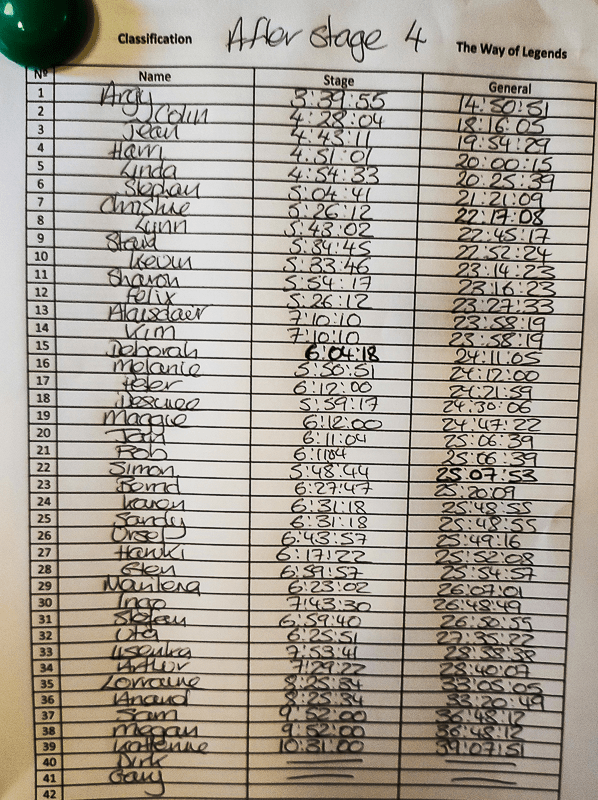 Classification After stage 4 The Way of Legends
Nº Name Stage General
1 Argy 3:39:55 14:50:51
2 Colin 4:28:04 18:16:05
3 Jean 4:43:11 19:54:29
4 Harri 4:51:01 20:00:15
5 Linda 4:54:33 20:25:39
6 Stephan 5:04:41 21:21:09
7 Christine 5:26:12 22:17:08
8 Lynn 5:43:02 22:45:17
9 5:34:45 22:52:24
10 Kevin 5:33:46 23:14:23
11 Sharon 5:54:17 23:16:23
12 Felix 5:26:12 23:27:33
13 Alaisdair 7:10:10 23:58:19
14 Kim 7:10:10 23:58:19
15 Deborah 6:04:18 24:11:05
16 Melanie 5:50:51 24:12:00
17 Peter 6:12:00 24:21:59
18 Desiree 5:59:17 24:30:06
19 Maggie 6:12:00 24:47:22
20 6:11:04 25:06:39
21 Rob 6:11:04 25:06:39
22 Simon 5:48:44 25:07:53
23 Bernd 6:27:47 25:20:09
24 Karen 6:31:18 25:48:55
25 Sandy 6:31:18 25:48:55
26 Ursel 6:43:57 25:49:16
27 6:17:22 25:52:08
28 6:59:57 25:54:57
29 Marilena 6:23:02 26:07:01
30 Ingo 7:43:30 26:48:49
31 Stefan 6:59:40 26:50:59
32 Uta 6:25:51 27:35:22
33 7:53:41 28:38:38
34 Arthur 7:29:22 28:40:07
35 Lorraine 8:25:34 33:05:05
36 Anand 8:25:34 33:20:49
37 Sam 9:52:00 36:48:12
38 Megan 9:52:00 36:48:12
39 10:31:00 39:07:51
40 Dirk
41 Gary
42